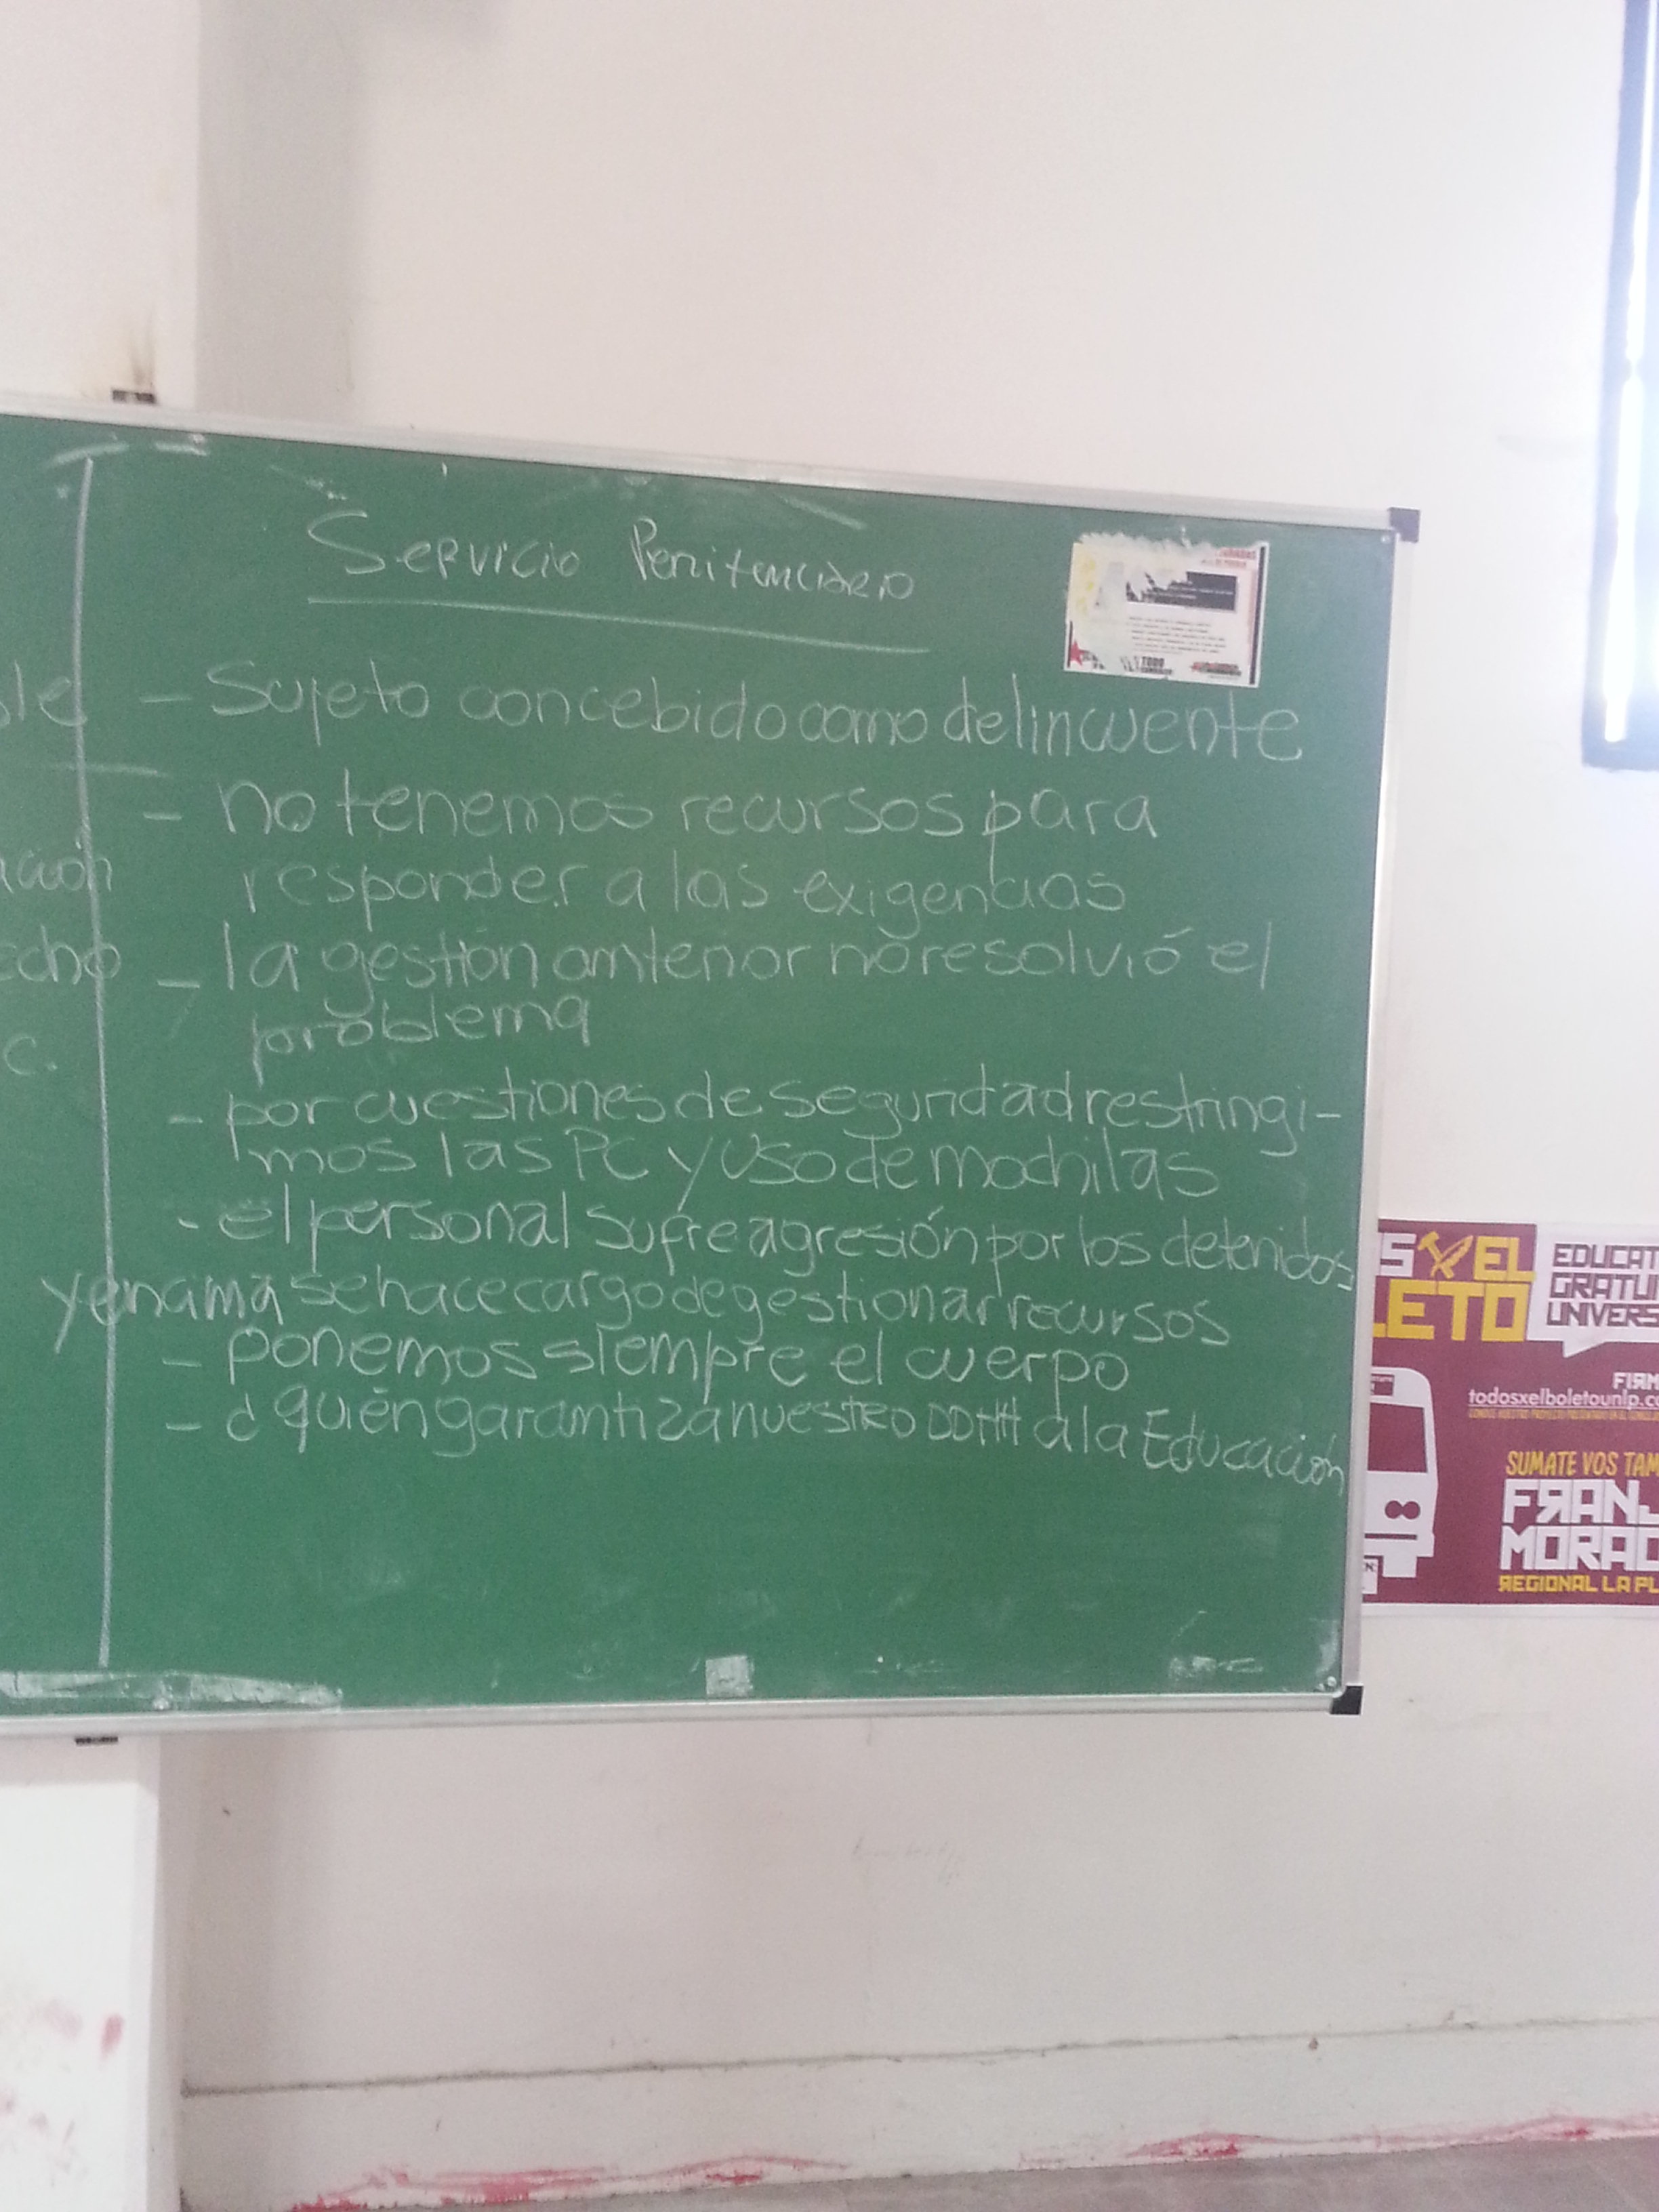 Servicio Penitenciario
- Sujeto concebido como delincuente
- no tenemos recursos para
responder a las exigencias
- la gestión anterior no resolvió el
problema
- por cuestiones de seguridad restringi-
mos las PC y uso de mochilas
- el personal sufre agresión por los detenidos
y enama se hace cargo de gestionar recursos
- ponemos siempre el cuerpo
- ¿quién garantiza nuestro DDHH a la Educación
echo
c.
TODO
EL
LETO
EDUCAT
GRATU
UNIVERS
FIRM
todosxelboletounlp.c
SUMATE VOS TAM
FRANJ
MORAD
REGIONAL LA PL